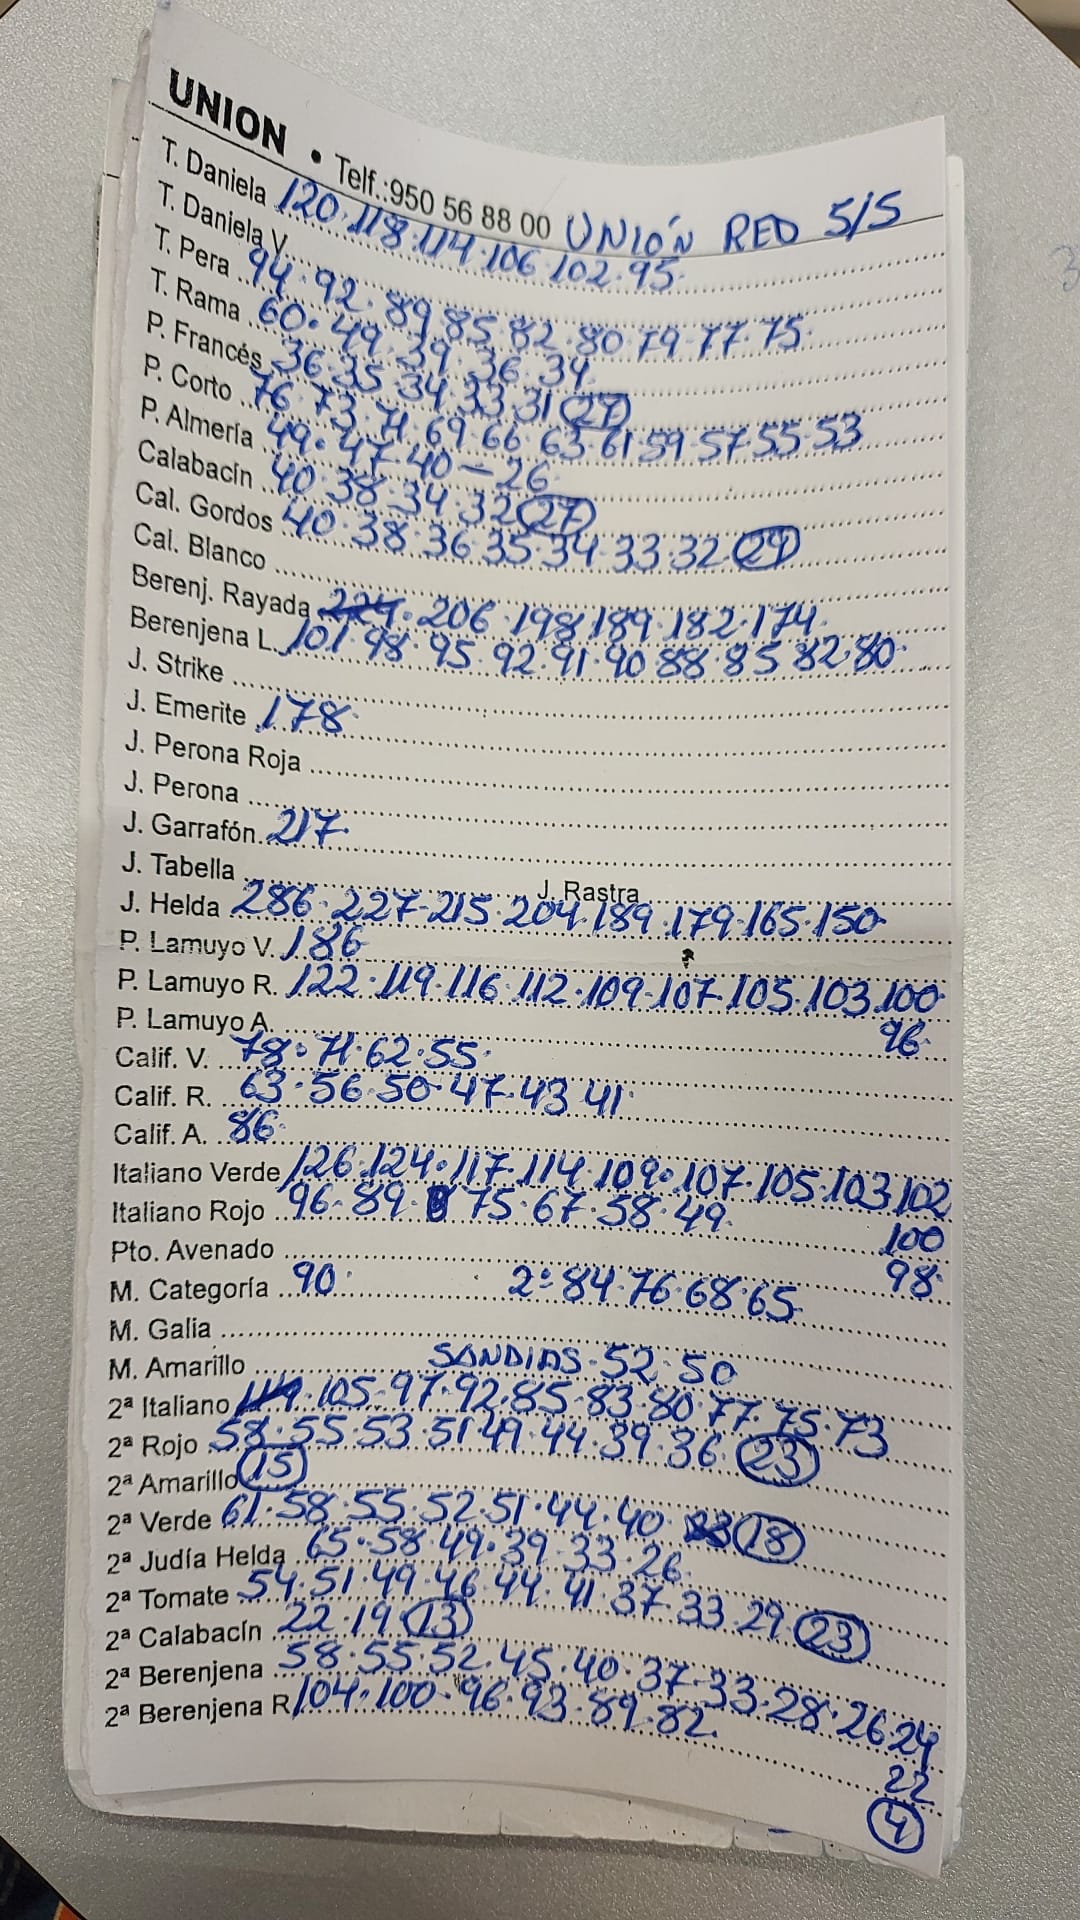 UNION • Telf.:950 56 88 00 UNIÓN RED 5/5
T. Daniela 120·118·114·106·102·95
T. Daniela V.
T. Pera 94·92·89·85·82·80·79·77·75
T. Rama 60·49·39·36·34
P. Francés 36·35·34·33·31 27
P. Corto 76·73·71·69·66·63·61·59·57·55·53
P. Almería 49·47·40-26
Calabacín 40·38·34·32 27
Cal. Gordos 40·38·36·35·34·33·32 29
Cal. Blanco
Berenj. Rayada 224·206·198·189·182·174
Berenjena L. 101·98·95·92·91·90·88·85·82·80
J. Strike
J. Emerite 178
J. Perona Roja
J. Perona
J. Garrafón 217
J. Tabella J. Rastra
J. Helda 286·227-215·204·189·179·165·150
P. Lamuyo V. 186
P. Lamuyo R. 122·119·116·112·109-107-105·103·100
96
P. Lamuyo A.
Calif. V. 78·71·62·55
Calif. R. 63·56·50·47·43·41
Calif. A. 86
Italiano Verde 126·124·117·114·109·107·105·103·102
100
98
Italiano Rojo 96·89·75·67·58·49
Pto. Avenado
M. Categoría 90 2ª 84·76·68·65
M. Galia
M. Amarillo SANDIAS·52·50
2ª Italiano 119·105-97·92·85·83·80·77·75·73
2ª Rojo 58·55·53·51·49·44·39·36 23
2ª Amarillo 15
2ª Verde 61·58·55·52·51·44·40 18
2ª Judía Helda 65·58·49·39·33·26
2ª Tomate 54·51·49·46·44·41·37·33·29 23
2ª Calabacín 22·19 13
2ª Berenjena 58·55·52·45·40·37·33·28·26·24
22
4
2ª Berenjena R 104·100·96·93·89·82